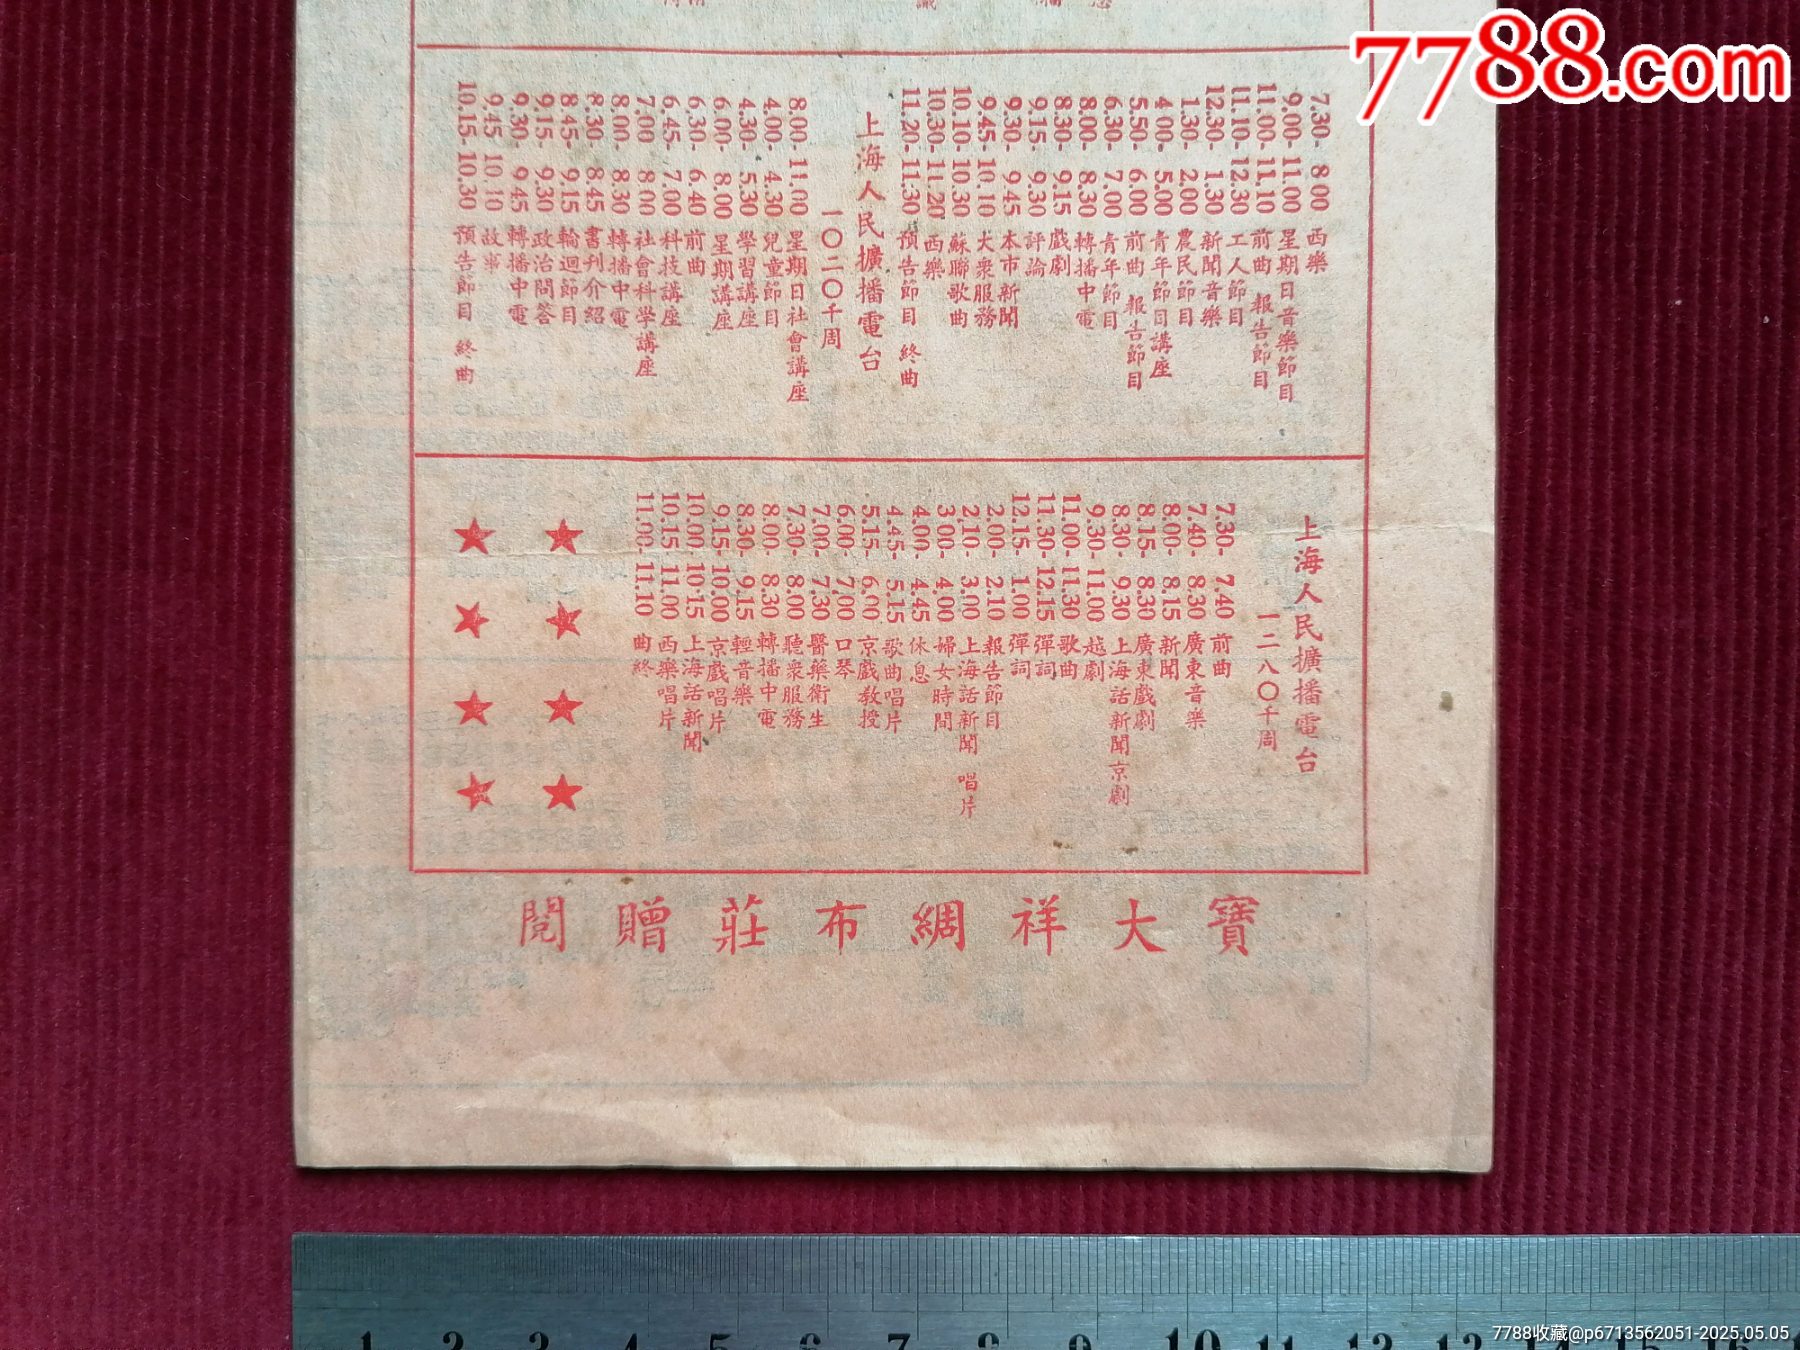 7788.com
7.30- 8.00 西樂
9.00- 11.00 星期日音樂節目
11.00- 11.10 前曲 報告節目
11.10- 12.30 工人節目
12.30- 1.30 新聞音樂
1.30- 2.00 農民節目
4.00- 5.00 青年節目講座
5.50- 6.00 前曲 報告節目
6.30- 7.00 青年節目
8.00- 8.30 轉播中電
8.30- 9.15 戲劇
9.15- 9.30 評論
9.30- 9.45 本市新聞
9.45- 10.10 大衆服務
10.10- 10.30 蘇聯歌曲
10.30- 11.20 西樂
11.20- 11.30 預告節目 終曲
上海人民擴播電台
一〇二〇千周
8.00- 11.00 星期日社會講座
4.00- 4.30 兒童節目
4.30- 5.30 學習講座
6.00- 8.00 星期講座
6.30- 6.40 前曲
6.45- 7.00 科技講座
7.00- 8.00 社會科學講座
8.00- 8.30 轉播中電
8.30- 8.45 書刊介紹
8.45- 9.15 輪迴節目
9.15- 9.30 政治問答
9.30- 9.45 轉播中電
9.45- 10.10 故事
10.15- 10.30 預告節目 終曲
上海人民擴播電台
一二八〇千周
7.30- 7.40 前曲
7.40- 8.30 廣東音樂
8.00- 8.15 新聞
8.15- 8.30 廣東戲劇
8.30- 9.30 上海話新聞京劇
9.30- 11.00 越劇
11.00- 11.30 歌曲
11.30- 12.15 彈詞
12.15- 1.00 彈詞
2.00- 2.10 報告節目
2.10- 3.00 上海話新聞 唱片
3.00- 4.00 婦女時間
4.00- 4.45 休息
4.45- 5.15 歌曲唱片
5.15- 6.00 京戲教授
6.00- 7.00 口琴
7.00- 7.30 醫藥衛生
7.30- 8.00 聽衆服務
8.00- 8.30 轉播中電
8.30- 9.15 輕音樂
9.15- 10.00 京戲唱片
10.00- 10.15 上海話新聞
10.15- 11.00 西樂唱片
11.00- 11.10 曲終
寶大祥綢布莊贈閱
1 2 3 4 5 6 7 8 9 10 11 12 13 14 15 16
7788收藏@p6713562051-2025.05.05